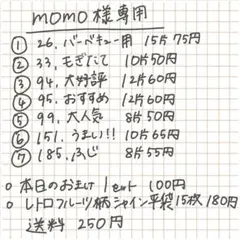 momo様専用
① 26. バーベキュー用 15片 75円
② 33. もぎたて 10片 50円
③ 94. 大好評 12片 60円
④ 95. おすすめ 12片 60円
⑤ 99. 大人気 8片 50円
⑥ 151. うまい!! 10片 65円
⑦ 185. ふじ 8片 55円
○ 本日のおまけ 1セット 100円
○ レトロフルーツ柄シャイン平袋15枚 180円
送料 250円